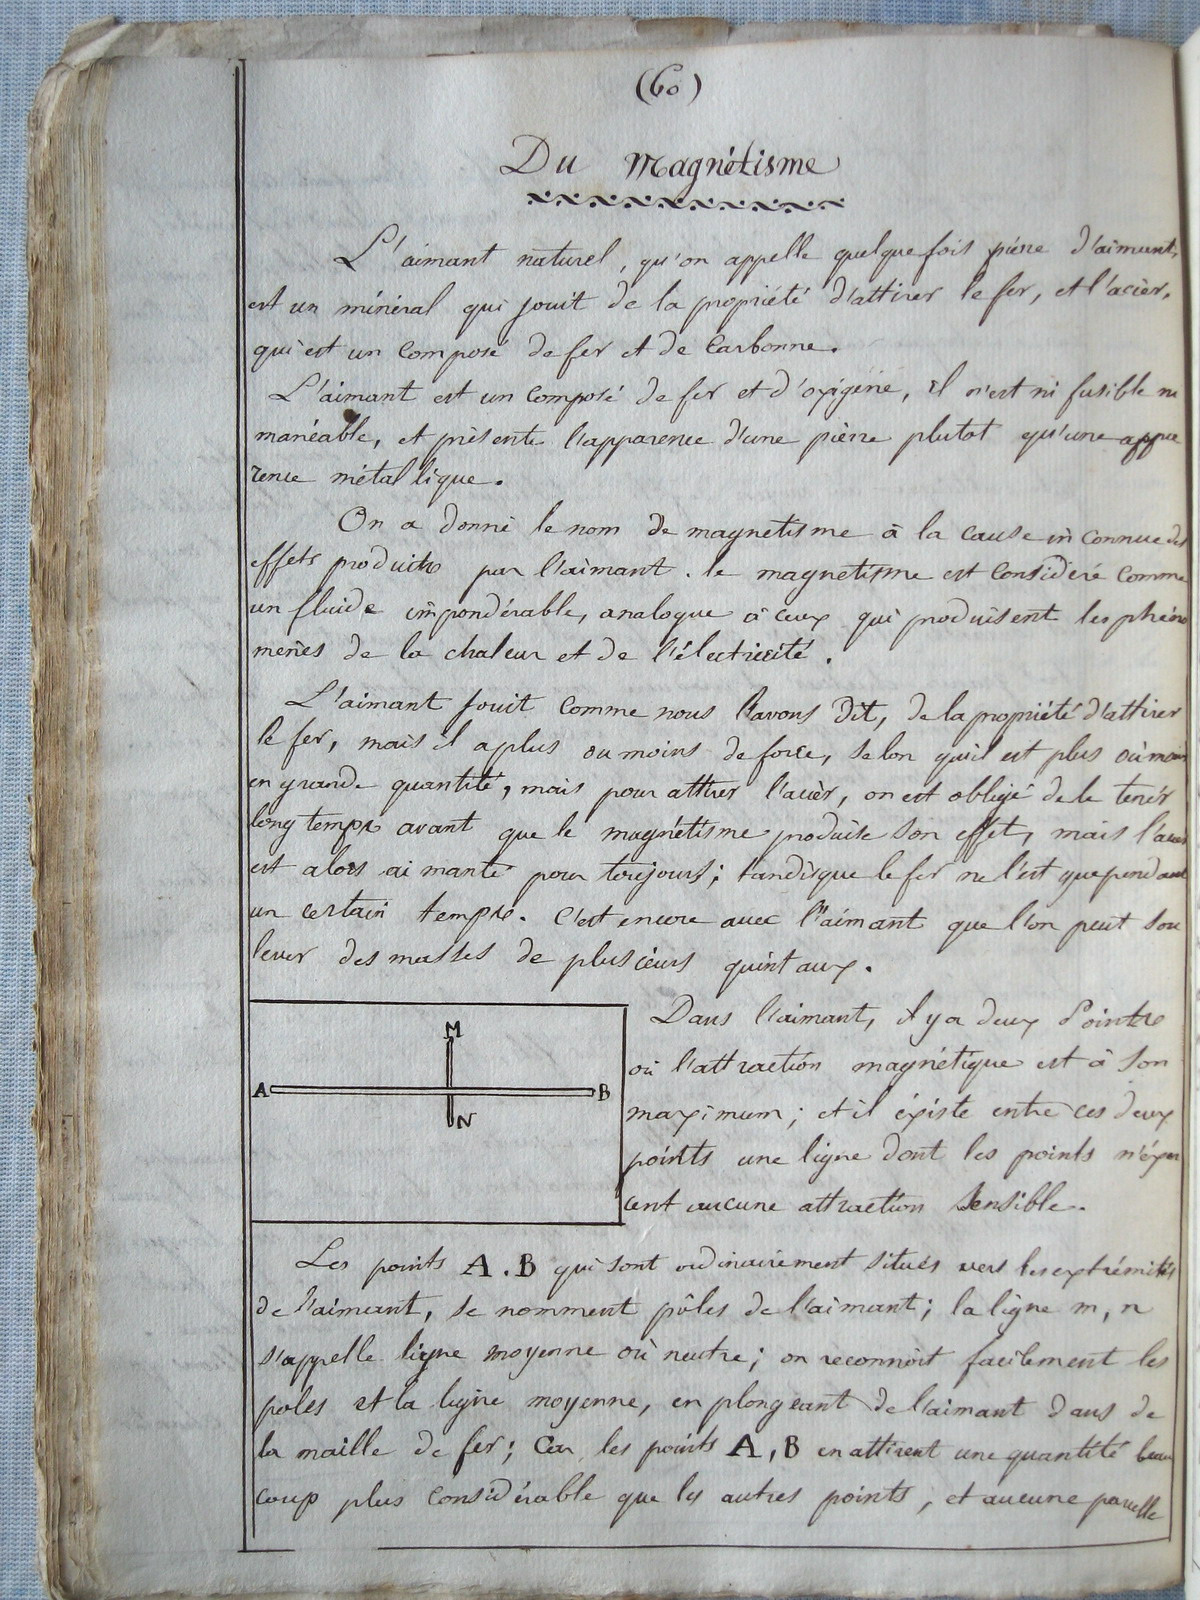 (60)
Du Magnétisme
L'aimant naturel, qu'on appelle quelque fois pierre d'aimant,
est un minéral qui jouit de la propriété d'attirer le fer, et l'acier,
qui est un composé de fer et de Carbonne.
L'aimant est un composé de fer et d'oxigène, il n'est ni fusible ni
manéable, et présente l'apparence d'une pierre plutot qu'une appa
rence métallique.
On a donné le nom de magnetisme à la cause in connue des
effets produits par l'aimant. le magnetisme est Consideré Comme
un fluide impondérable, analogue à ceux qui produisent les phéno
mènes de la chaleur et de l'électricité.
L'aimant Jouit Comme nous l'avons Dit, de la propriété d'attirer
le fer, mais il a plus ou moins de force, selon qu'il est plus ou moins
en grande quantité, mais pour attirer l'acièr, on est obligé de le tenir
long temps avant que le magnétisme produise son effet, mais l'acier
est alors aimanté pour toujours; tandisque le fer ne l'est que pendant
un certain temps. C'est encore avec l'aimant que l'on peut sou
lever des masses de plusieurs quintaux.
Dans l'aimant, il y a deux Points
où l'attraction magnétique est à son
maximum; et il éxiste entre ces deux
points une ligne dont les points n'éxer
cent aucune attraction sensible.
M
A B
N
Les points A.B qui sont ordinairement situés vers les extrémités
de l'aimant, se nomment pôles de l'aimant; la ligne m, n
s'appelle ligne moyenne où neutre; on reconnoit facilement les
poles et la ligne moyenne, en plongeant de l'aimant dans de
la maille de fer; Car les points A, B en attirent une quantité beau
coup plus Considérable que les autres points, et aucune parcelle